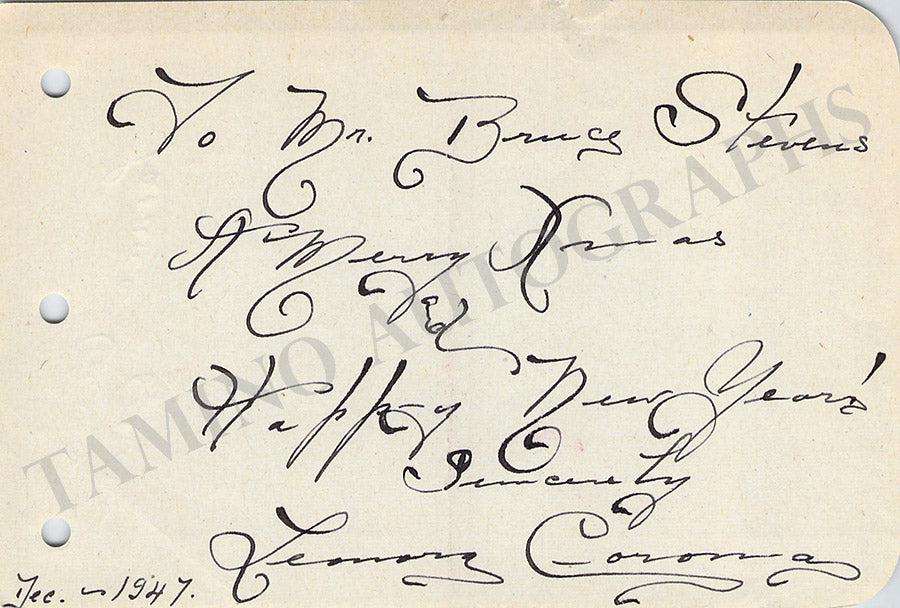 To Mr. Bruce Stevens
A Merry Xmas
and
Happy New Year's
Sincerely
Lenora Corona
Dec. - 1947.
TAMINO AUTOGRAPHS